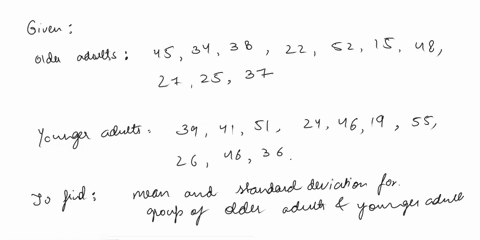 Given :
Older adults : 45, 34, 38, 22, 52, 15, 48,
27, 25, 37
Younger adults : 39, 41, 51, 24, 46, 19, 55,
26, 46, 36.
To find : mean and standard deviation for
group of older adult & younger adult